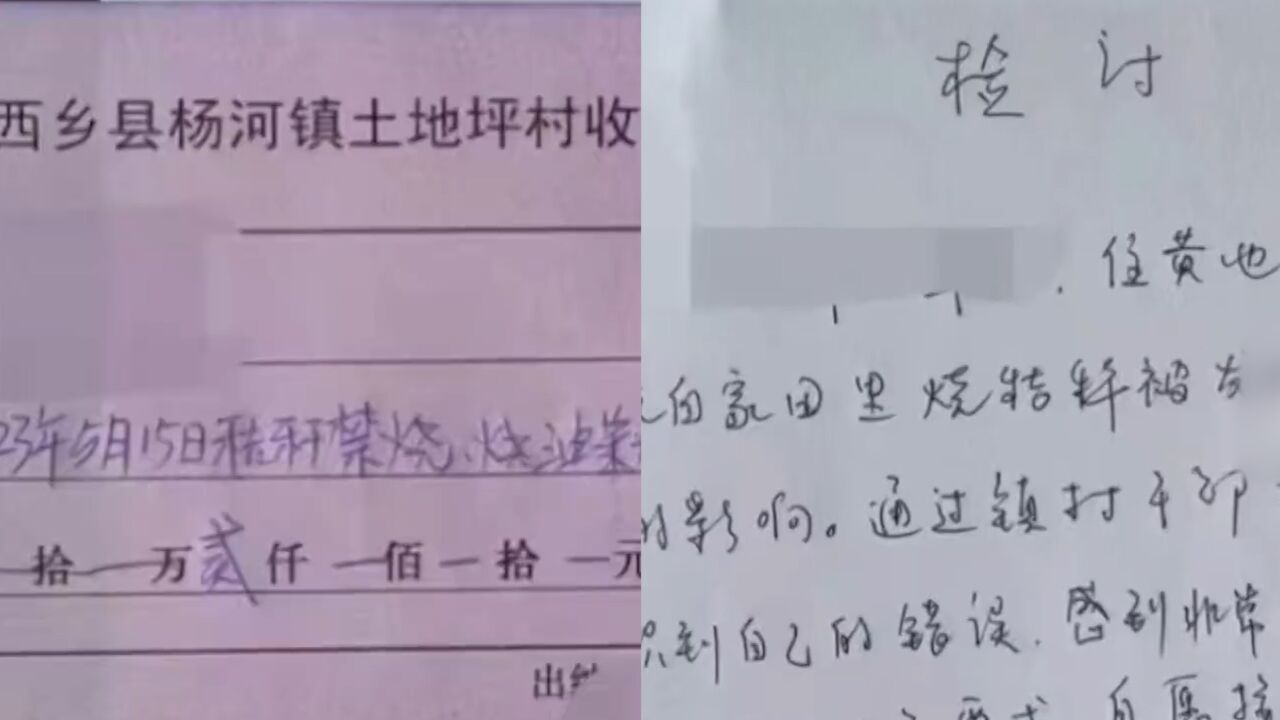 西乡县杨河镇土地坪村收
23年5月15日秸秆禁烧、烧油菜
拾 万贰仟 佰 拾 元
出纳
检讨
住黄池
自家田里烧秸秆被
的影响。通过镇村干部
识到自己的错误.感到非常
自愿接